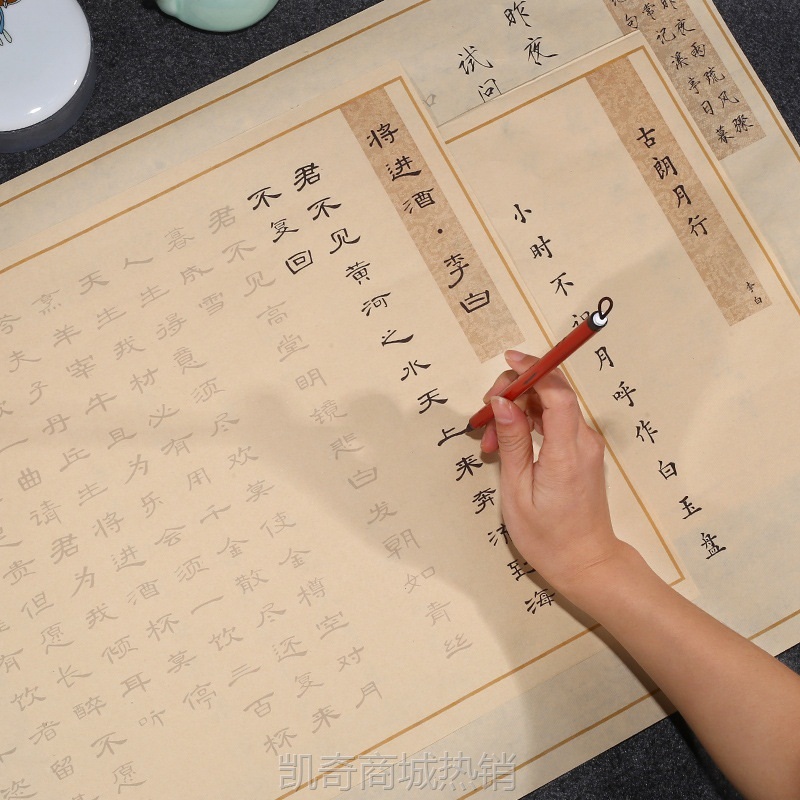 昨夜雨疏风骤
常记溪亭日暮
昨夜
试问
古朗月行
李白
小时不识月呼作白玉盘
将进酒·李白
君不见黄河之水天上来奔流到海
不复回
君不见高堂明镜悲白发朝如青丝
暮成雪
人生得意须尽欢莫使金樽空对月
天生我材必有用千金散尽还复来
烹羊宰牛且为乐会须一饮三百杯
岑夫子丹丘生将进酒杯莫停
一曲请君为我倾耳听
足贵但愿长醉不愿
有饮者留
恣
凯奇商城热销